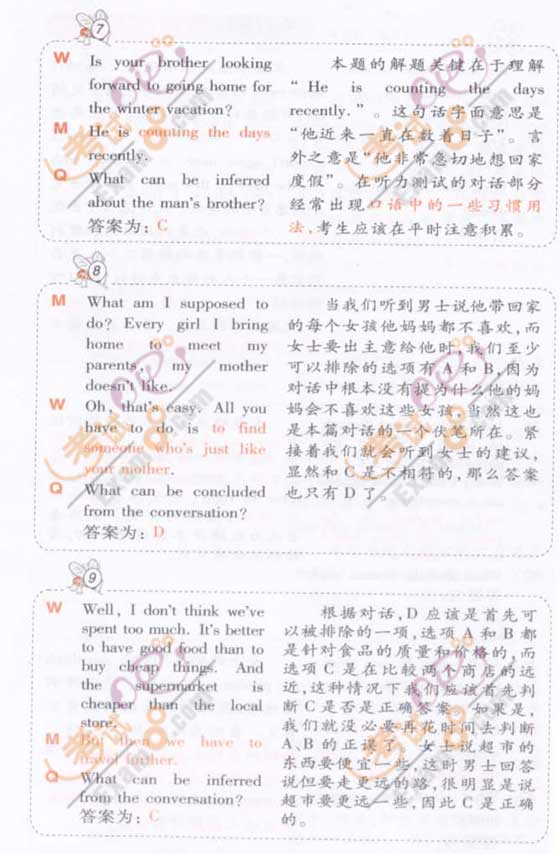 7
W Is your brother looking
forward to going home for
the winter vacation?
M He is counting the days
recently.
Q What can be inferred
about the man's brother?
答案为：C
本题的解题关键在于理解
“He is counting the days
recently.”。这句话字面意思是
“他近来一直在数着日子”。言
外之意是“他非常急切地想回家
度假”。在听力测试的对话部分
经常出现口语中的一些习惯用
法，考生应该在平时注意积累。
8
M What am I supposed to
do? Every girl I bring
home to meet my
parents, my mother
doesn't like.
W Oh, that's easy. All you
have to do is to find
someone who's just like
your mother.
Q What can be concluded
from the conversation?
答案为：D
当我们听到男士说他带回家
的每个女孩他妈妈都不喜欢，而
女士要出主意给他时，我们至少
可以排除的选项有 A 和 B，因为
对话中根本没有提为什么他的妈
妈会不喜欢这些女孩，当然这也
是本篇对话的一个伏笔所在。紧
接着我们就会听到女士的建议，
显然和 C 是不相符的，那么答案
也只有 D 了。
9
W Well, I don't think we've
spent too much. It's better
to have good food than to
buy cheap things. And
the supermarket is
cheaper than the local
store.
M But then we have to
travel further.
Q What can be inferred
from the conversation?
答案为：C
根据对话，D 应该是首先可
以被排除的一项，选项 A 和 B 都
是针对食品的质量和价格的，而
选项 C 是在比较两个商店的远
近，这种情况下我们应该首先判
断 C 是否是正确答案。如果是，
我们就没必要再花时间去判断
A、B 的正误了。女士说超市的
东西要便宜一些，这时男士回答
说但要走更远的路，很明显是说
超市要更远一些，因此 C 是正确
的。